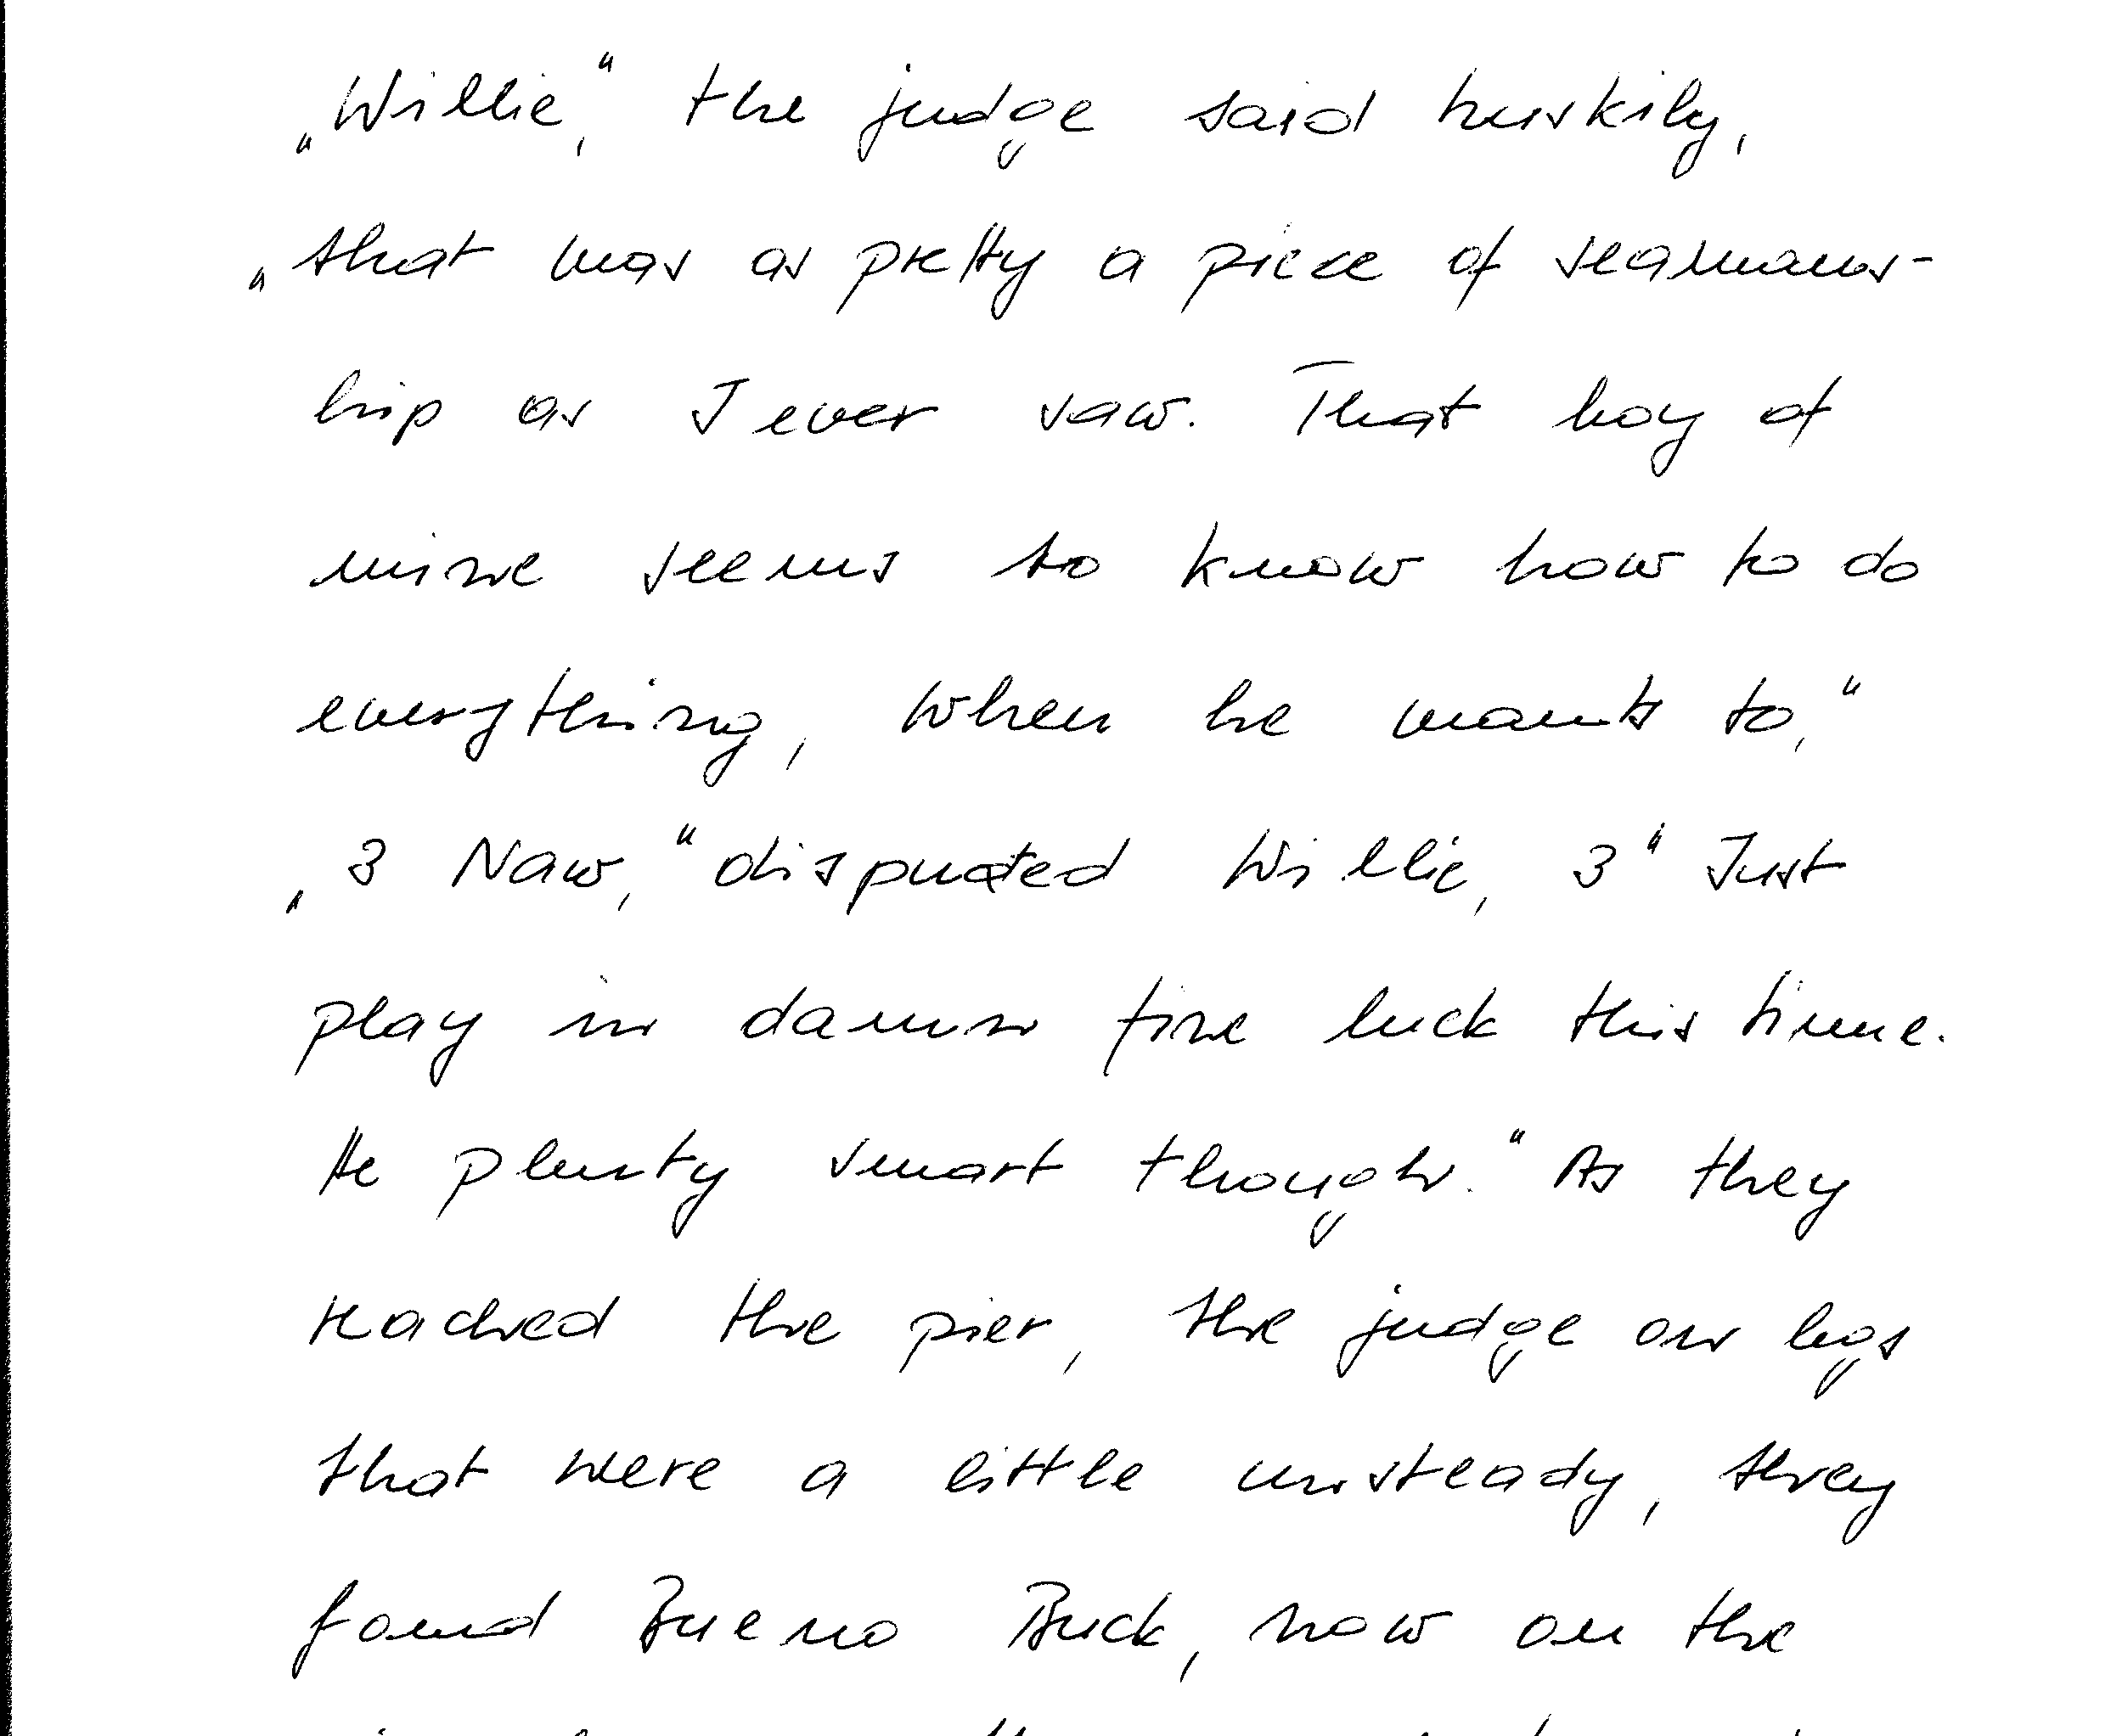 „Willie,“ the judge said huskily,
„that was as pretty a piece of seamans-
hip as I ever saw. That boy of
mine seems to know how to do
everything, when he wants to,“
„3 Naw,“ disputed Willie, 3“ Just
play in damn fine luck this time.
He plenty smart though.“ As they
reached the pier, the judge on legs
that were a little unsteady, they
found Bueno Buck, now on the